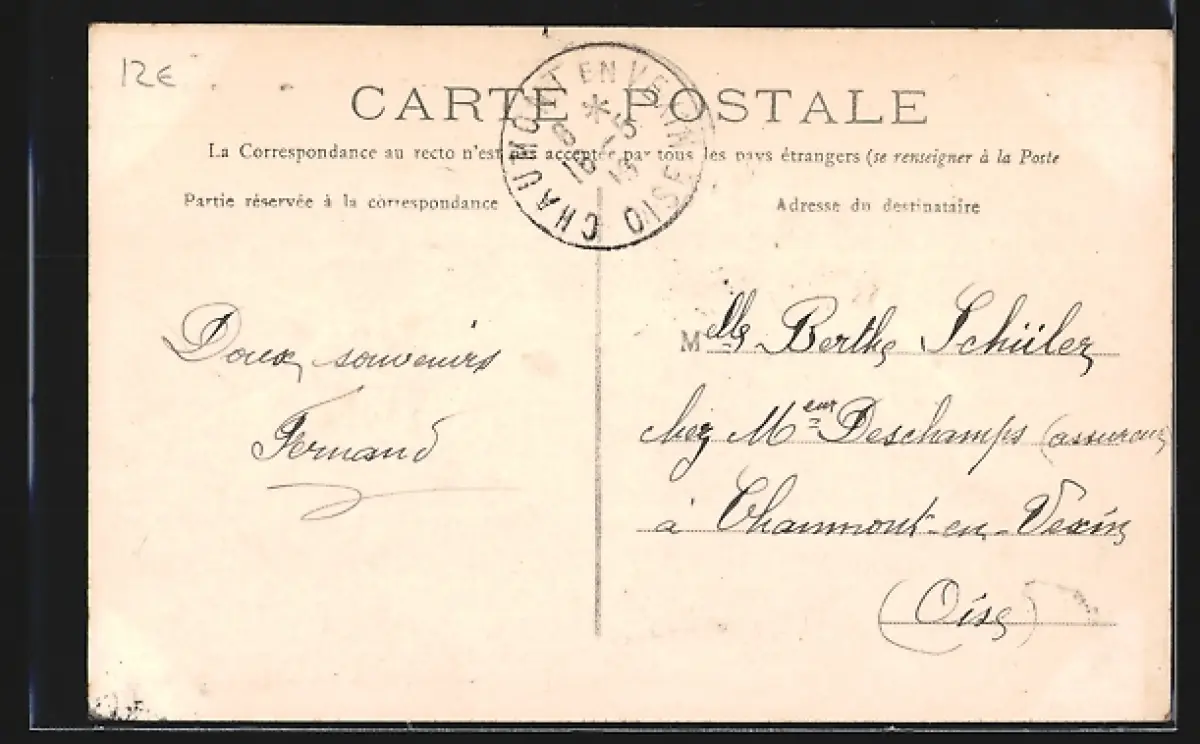 12€
CARTE POSTALE
La Correspondance au recto n'est pas acceptée par tous les pays étrangers (se renseigner à la Poste
Partie réservée à la correspondance
Adresse du destinataire
CHAUMONT EN VEXIN OISE
Doux souvenirs
Fernand
Melle Berthe Schüler
chez Meur Deschamps (assureur
à Chaumont-en-Vexin
(Oise)